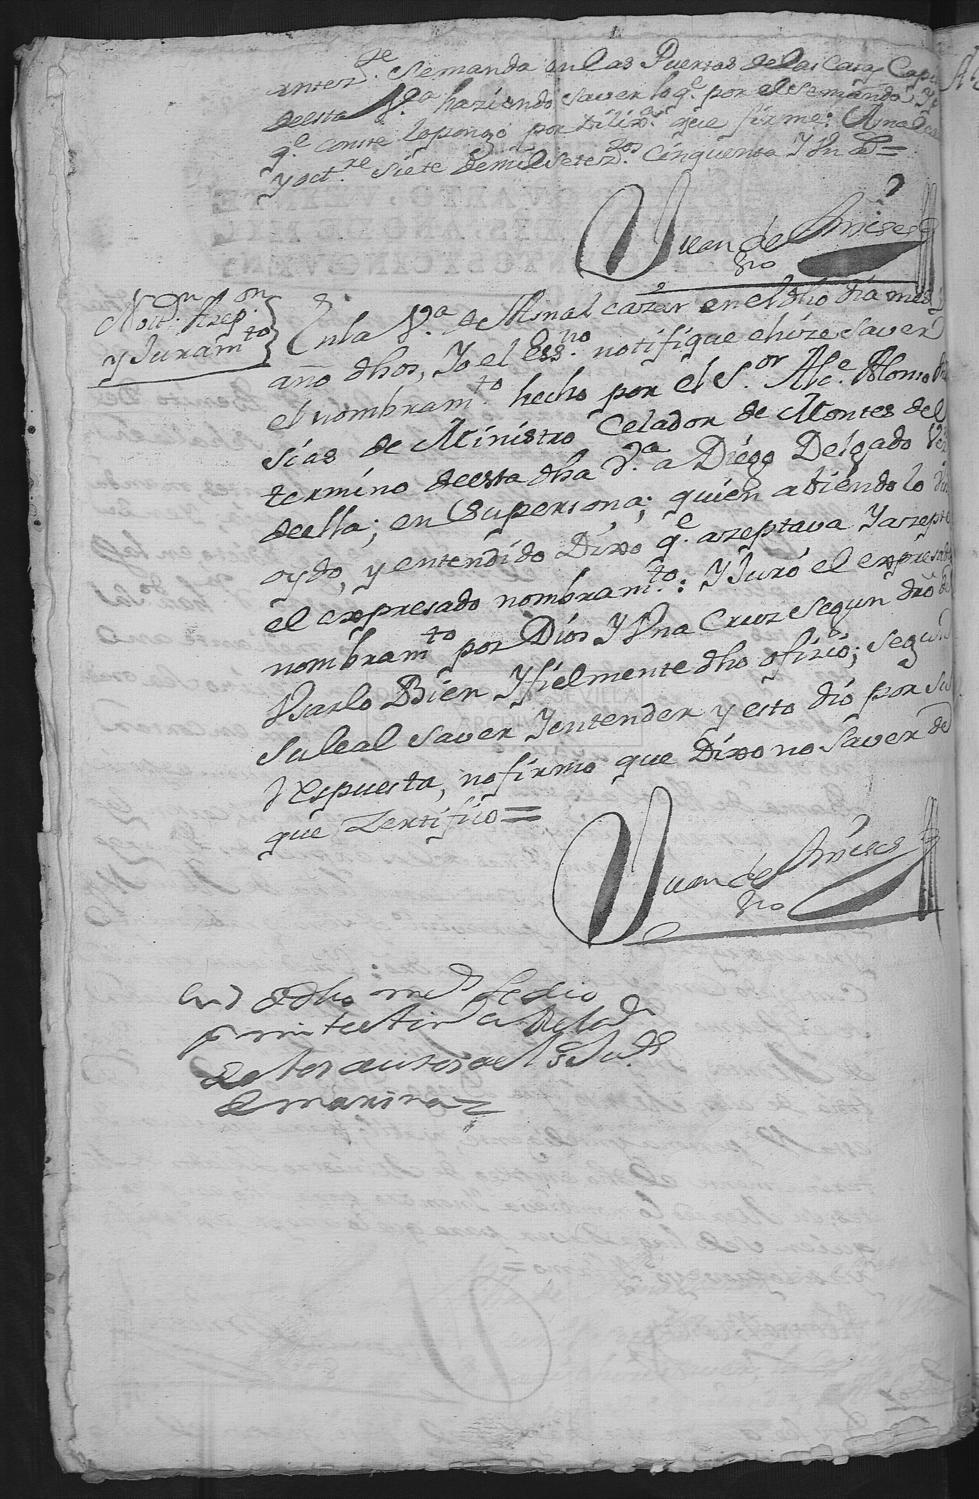 anter.te se manda en las Puertas de las Casas Capi
de esta V.a haziendo saver lo q.e por el se manda, y p.a
q.e conste lo pongo por Dilix.a que firme: Aznalcazar
y oct.re siete de mil setez.dos Cinquenta Y Un a.s =
Juan de Amises
ss.no
Notif.on Azep.on
y Juram.to
En la V.a de Aznalcazar en el dho dia mes y
año dhos, Yo el Ess.no notifique e hize saver
el nombram.to hecho por el S.or Alc.e Alonso
sias de Ministro Celador de Montes del
termino de esta dha V.a a Diego Delgado Vez.o
de ella; en Su persona; quien abiendo lo
oydo, y entendido Dixo q.e azeptava Y azepto
el expresado nombram.to: Y Juró el expresado
nombram.to por Dios Y Una Cruz segun dro
Usarlo Bien Y fielmente dho ofizio; segun
su leal saver Y entender y esto dio por su
respuesta, no firmo que Dixo no saver de
que Zertifico =
Juan de Amises
ss.no
en dho
de los autos
de marina